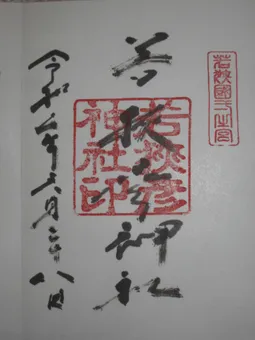 若狭國一之宮
若狭彦神社
若狭彦神社印
令和二年六月二十八日